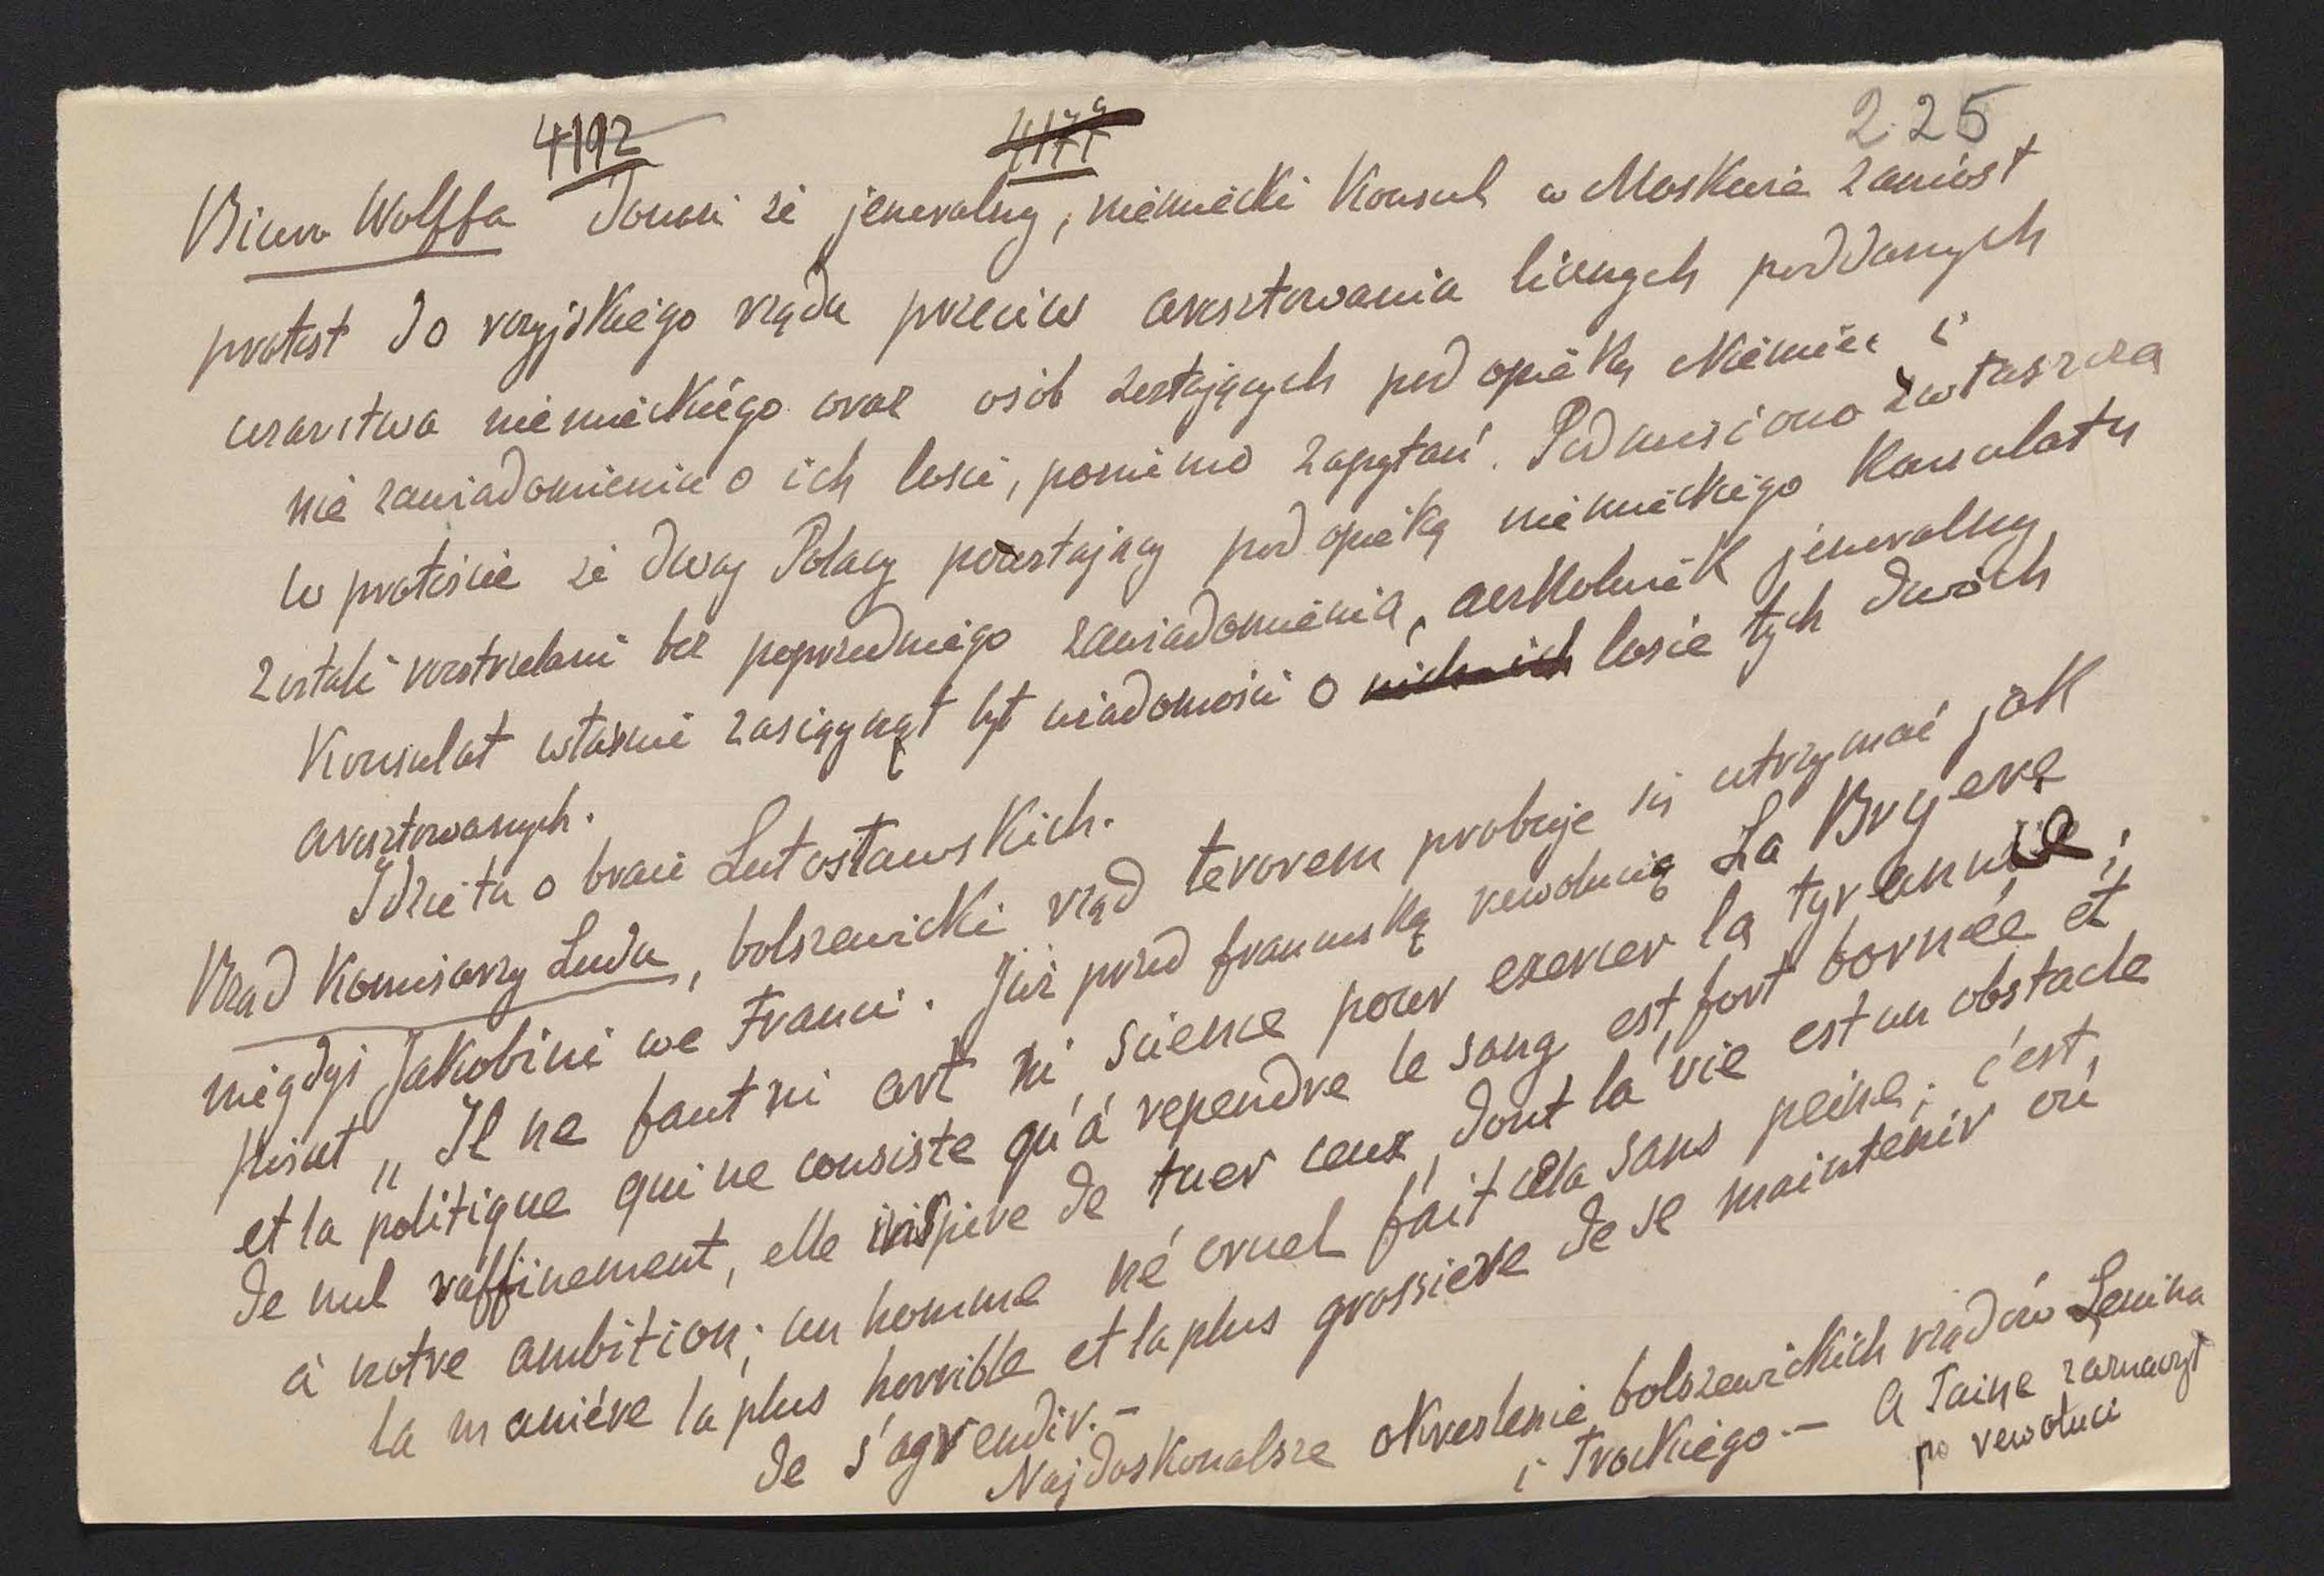 4192 4177a 225
Biuro Wolffa donosi że jeneralny, niemiecki Konsul w Moskwie zaniósł
protest do rosyjskiego rządu przeciw aresztowania licznych poddanych
cesarstwa niemieckiego oraz osób zostających pod opieką Niemiec i
nie zawiadomieniu o ich losie, pomimo zapytań. Podnusiono zwłaszcza
w proteście że dwaj Polacy pozostający pod opieką niemieckiego Konsulatu
zostali rozstrzelani bez poprzedniego zawiadomienia, aczkolwiek jeneralny
Konsulat właśnie zasięgnął był wiadomości o nich ich losie tych dwóch
aresztowanych.
Idzie tu o braci Lutosławskich.
Rząd Komisarzy Ludu, bolszewicki rząd terorem probuje się utrzymać jak
niegdyś Jakobini we Francii. Już przed francuską rewolucią La Bryere
pisał „Il ne faut ni art ni science pour exercer la tyrannie;
et la politique qui ne consiste qu'à rependre le sang est fort bornée et
de nul raffinement, elle inspire de tuer ceux dont la vie est un obstacle
à notre ambition; un homme né cruel fait cela sans peine; c'est,
la maniére la plus horrible et la plus grossiere de se maintenir où
de s'agrendir.—
Najdoskonalsze okreslenie bolszewickich rządów Lenina
i Trockiego.— A Taine zaznaczył
po rewoluci